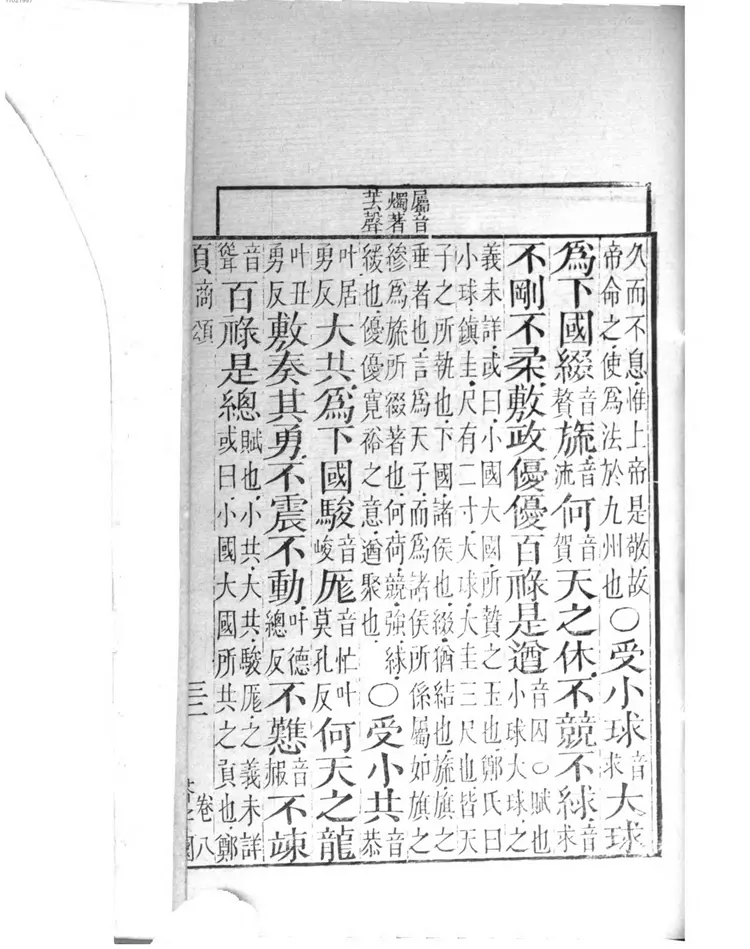 屬音
燭著
厺聲
久而不息惟上帝是敬故帝命之使爲法於九州也○受小球音求大球
爲下國綴音贅旒音流何音賀天之休不競不絿音求
不剛不柔敷政優優百祿是遒音囚○賦也小球大球之
義未詳或曰小國大國所贄之玉也鄭氏曰
小球鎮圭尺有二寸大球大圭三尺也皆天
子之所執也下國諸侯也綴猶結也旒旗之
垂者也言爲天子而爲諸侯所係屬如旗之
縿爲旒所綴著也何荷競強絿緩也優優寬裕之意遒聚也○受小共音恭
叶居勇反大共爲下國駿音峻厖音忙叶莫孔反何天之龍
叶丑勇反敷奏其勇不震不動叶德總反不戁音赧不竦
音聳百祿是總賦也小共大共駿厖之義未詳或曰小國大國所共之貢也鄭
商頌 卷八